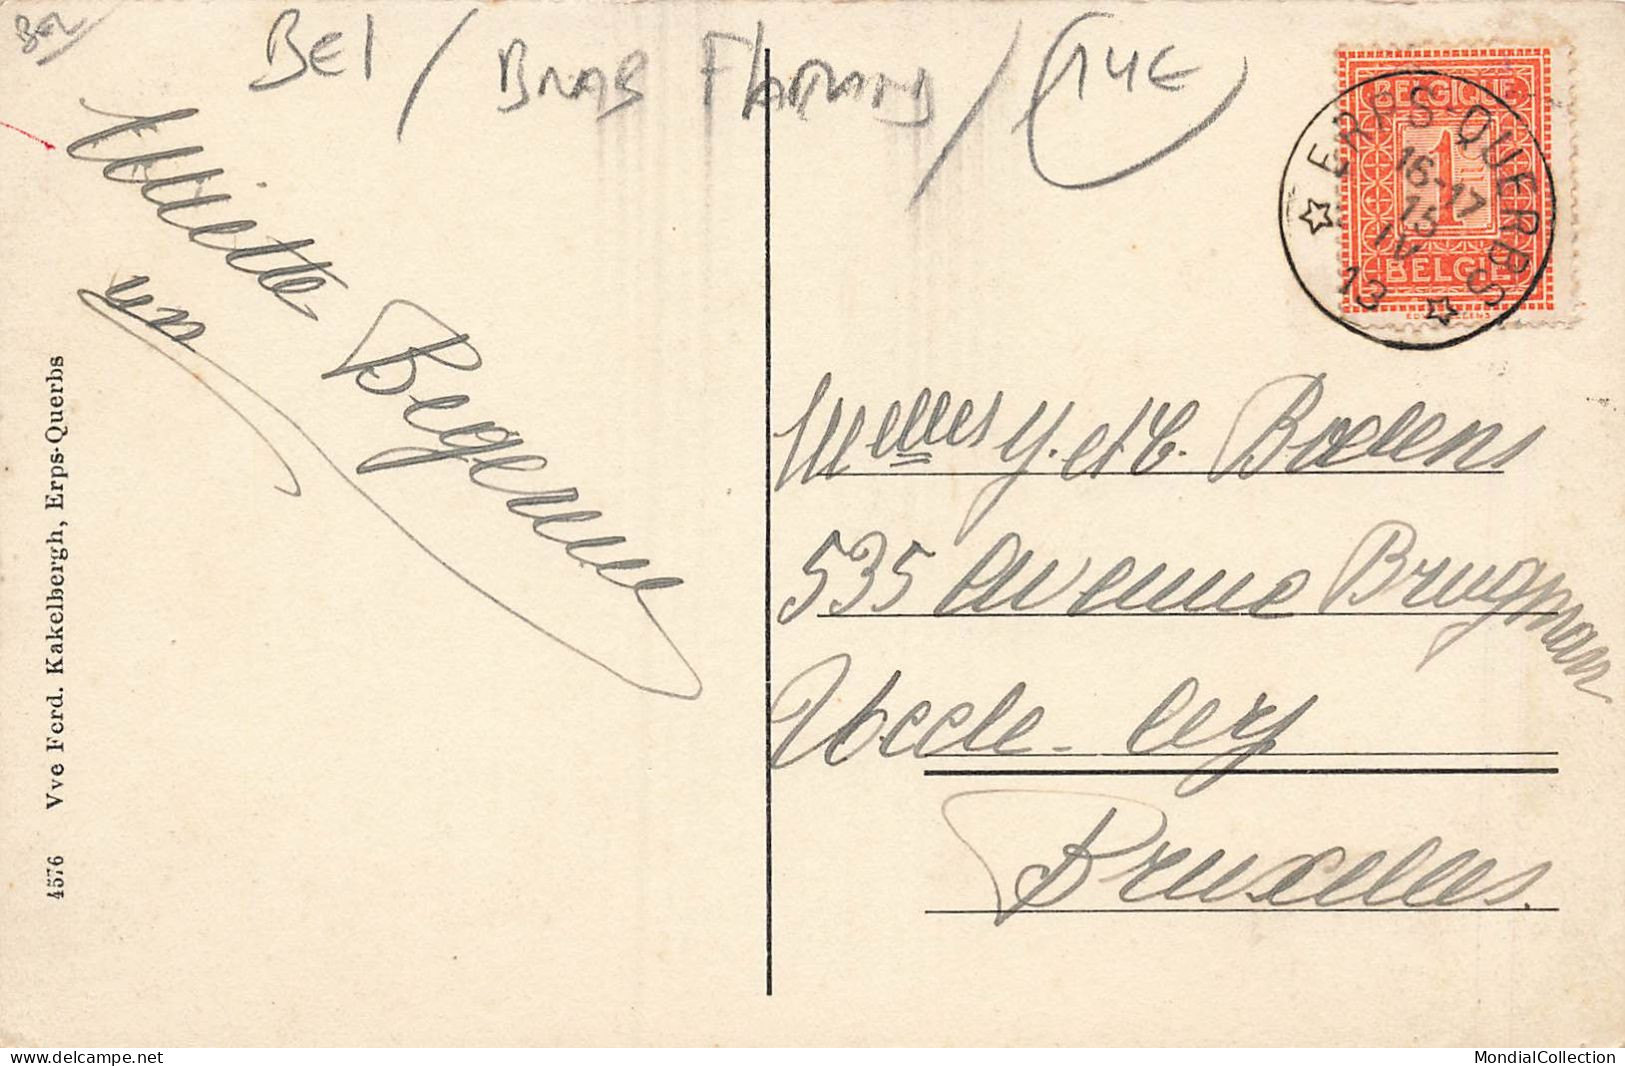 BEL
BEl / BRAB Flamand / 14€
BELGIQUE
1
BELGIË
ERPS-QUERBS
16-17
15
IV
13
Begerem
4576 Vve Ferd. Kakelbergh, Erps-Querbs
Melles Y. et C. Boelens
535 Avenue Brugman
Uccle-
Bruxelles.
delcampe.net
MondialCollection